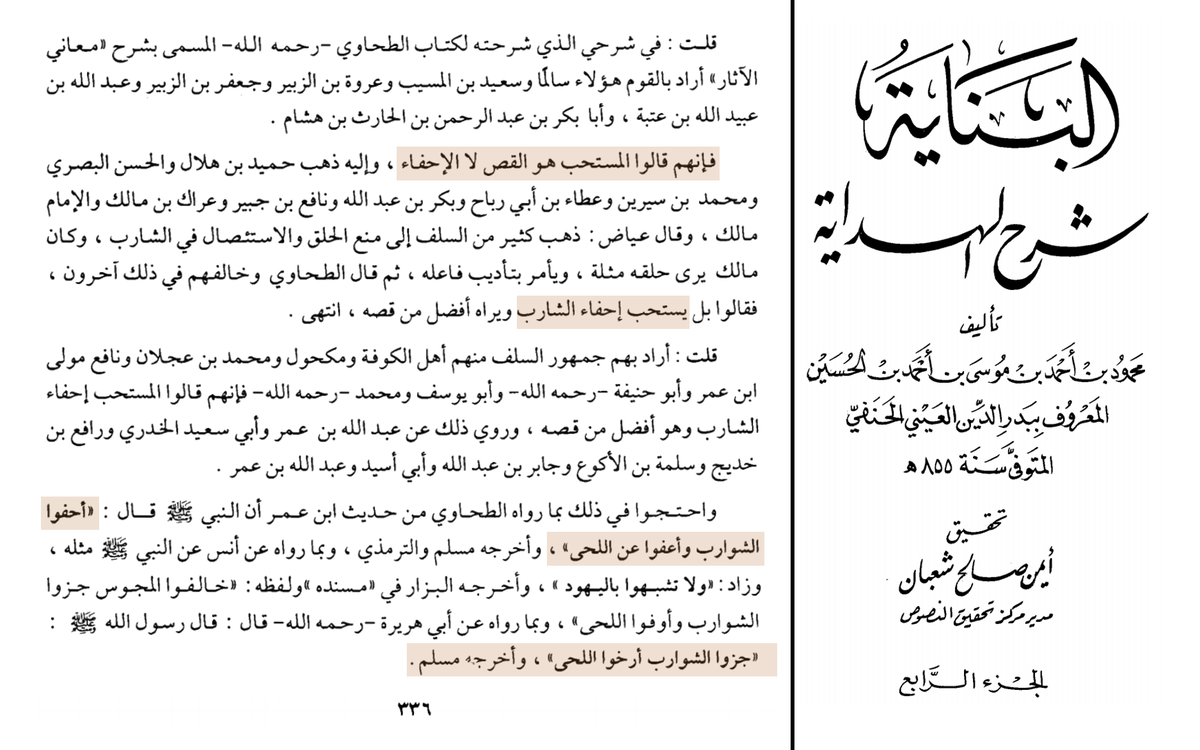 قلت : في شرحي الذي شرحته لكتاب الطحاوي –رحمه الله– المسمى بشرح «معاني
الآثار» أراد بالقوم هؤلاء سالمًا وسعيد بن المسيب وعروة بن الزبير وجعفر بن الزبير وعبد الله بن
عبيد الله بن عتبة ، وأبا بكر بن عبد الرحمن بن الحارث بن هشام .
فإنهم قالوا المستحب هو القص لا الإحفاء ، وإليه ذهب حميد بن هلال والحسن البصري
ومحمد بن سيرين وعطاء بن أبي رباح وبكر بن عبد الله ونافع بن جبير وعراك بن مالك والإمام
مالك ، وقال عياض : ذهب كثير من السلف إلى منع الحلق والاستئصال في الشارب ، وكان
مالك يرى حلقه مثلة ، ويأمر بتأديب فاعله ، ثم قال الطحاوي وخالفهم في ذلك آخرون ،
فقالوا بل يستحب إحفاء الشارب ويراه أفضل من قصه ، انتهى .
قلت : أراد بهم جمهور السلف منهم أهل الكوفة ومكحول ومحمد بن عجلان ونافع مولى
ابن عمر وأبو حنيفة –رحمه الله– وأبو يوسف ومحمد –رحمه الله– فإنهم قالوا المستحب إحفاء
الشارب وهو أفضل من قصه ، وروي ذلك عن عبد الله بن عمر وأبي سعيد الخدري ورافع بن
خديج وسلمة بن الأكوع وجابر بن عبد الله وأبي أسيد وعبد الله بن عمر .
واحتجوا في ذلك بما رواه الطحاوي من حديث ابن عمر أن النبي ﷺ قال : «أحفوا
الشوارب وأعفوا عن اللحى» ، وأخرجه مسلم والترمذي ، وبما رواه عن أنس عن النبي ﷺ مثله ،
وزاد : «ولا تشبهوا باليهود » ، وأخرجه البزار في «مسنده »ولفظه : «خالفوا المجوس جزوا
الشوارب وأوفوا اللحى» ، وبما رواه عن أبي هريرة –رحمه الله– قال : قال رسول الله ﷺ :
«جزوا الشوارب أرخوا اللحى» ، وأخرجه مسلم .
٣٣٦
البَنَايَة
شرح الهداية
تأليف
محمود بن أحمد بن موسى بن أحمد بن الحسين
المعروف ببدر الدين العيني الحنفي
المتوفى سنة ٨٥٥ ه
تحقيق
أيمن صالح شعبان
مدير مركز تحقيق النصوص
الجزء الرابع